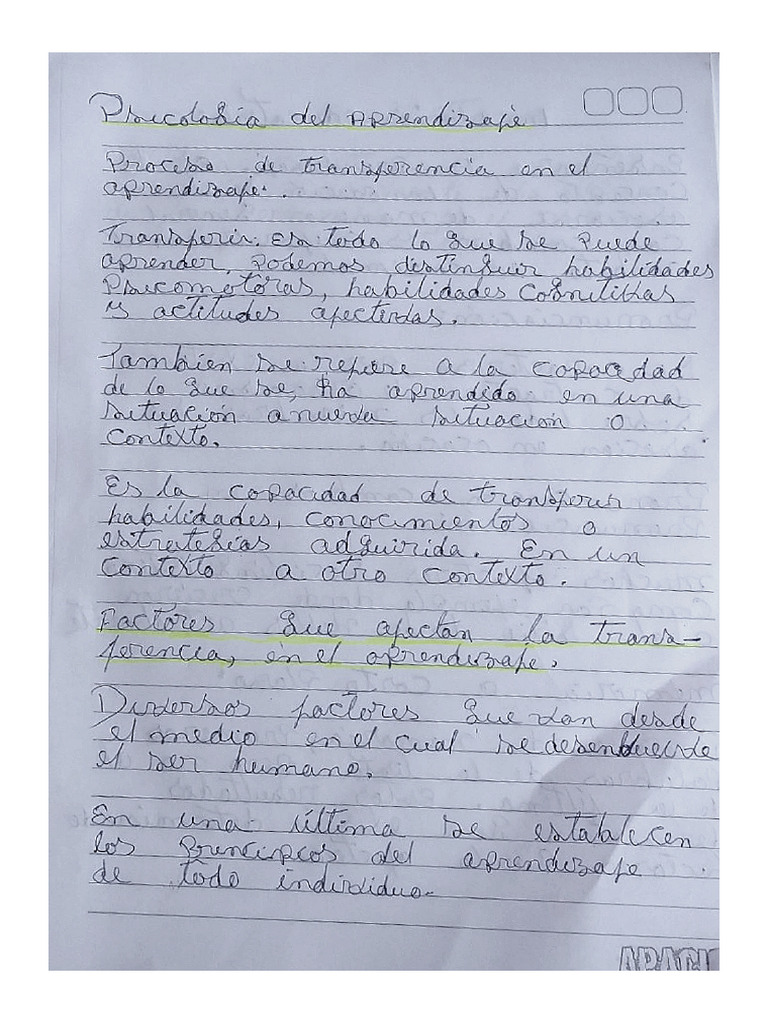 Psicología del Aprendizaje
Proceso de transferencia en el
aprendizaje.
Transferir. Es todo lo que se puede
aprender, podemos distinguir habilidades
Psicomotoras, habilidades cognitivas
y actitudes afectivas.
Tambien se refiere a la capacidad
de lo que se, ha aprendido en una
situación a nueva situación o
contexto.
Es la capacidad de transferir
habilidades, conocimientos o
estrategias adquirida. En un
contexto a otro contexto.
Factores que afectan la trans-
ferencia, en el aprendizaje.
Diversos factores que van desde
el medio en el cual se desenvuelve
el ser humano.
En una última se establecen
los principios del aprendizaje
de todo individuo.